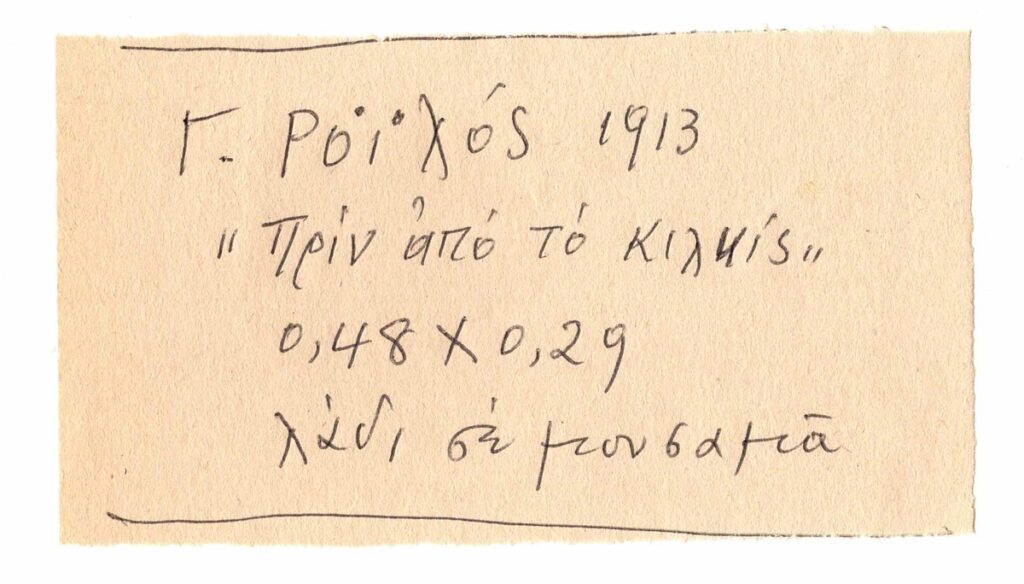 Γ. Ροϊλός 1913
"Πρίν ἀπό τό Κιλκίς"
0,48 Χ 0,29
λάδι σέ μουσαμᾶ